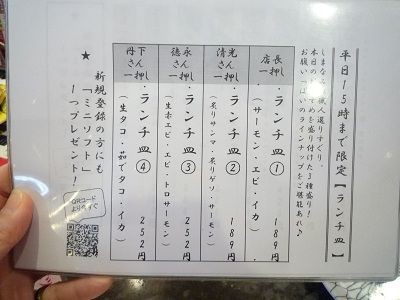 平日15時まで限定【ランチ皿】
しまなら職人選りすぐり、
本日のおすすめを盛り付けた3種盛り!
お腹いっぱいのラインナップをご堪能あれ♪
店長
一押し
・ランチ皿①
(サーモン・エビ・イカ)
189円
清光
さん
一押し
・ランチ皿②
(炙りサンマ・炙りゲソ・サーモン)
189円
徳永
さん
一押し
・ランチ皿③
(生赤エビ・エビ・トロサーモン)
252円
丹下
さん
一押し
・ランチ皿④
(生タコ・茹でタコ・イカ)
252円
★
新規登録の方にも
「ミニソフト」
一つプレゼント!
QRコード
より今すぐ